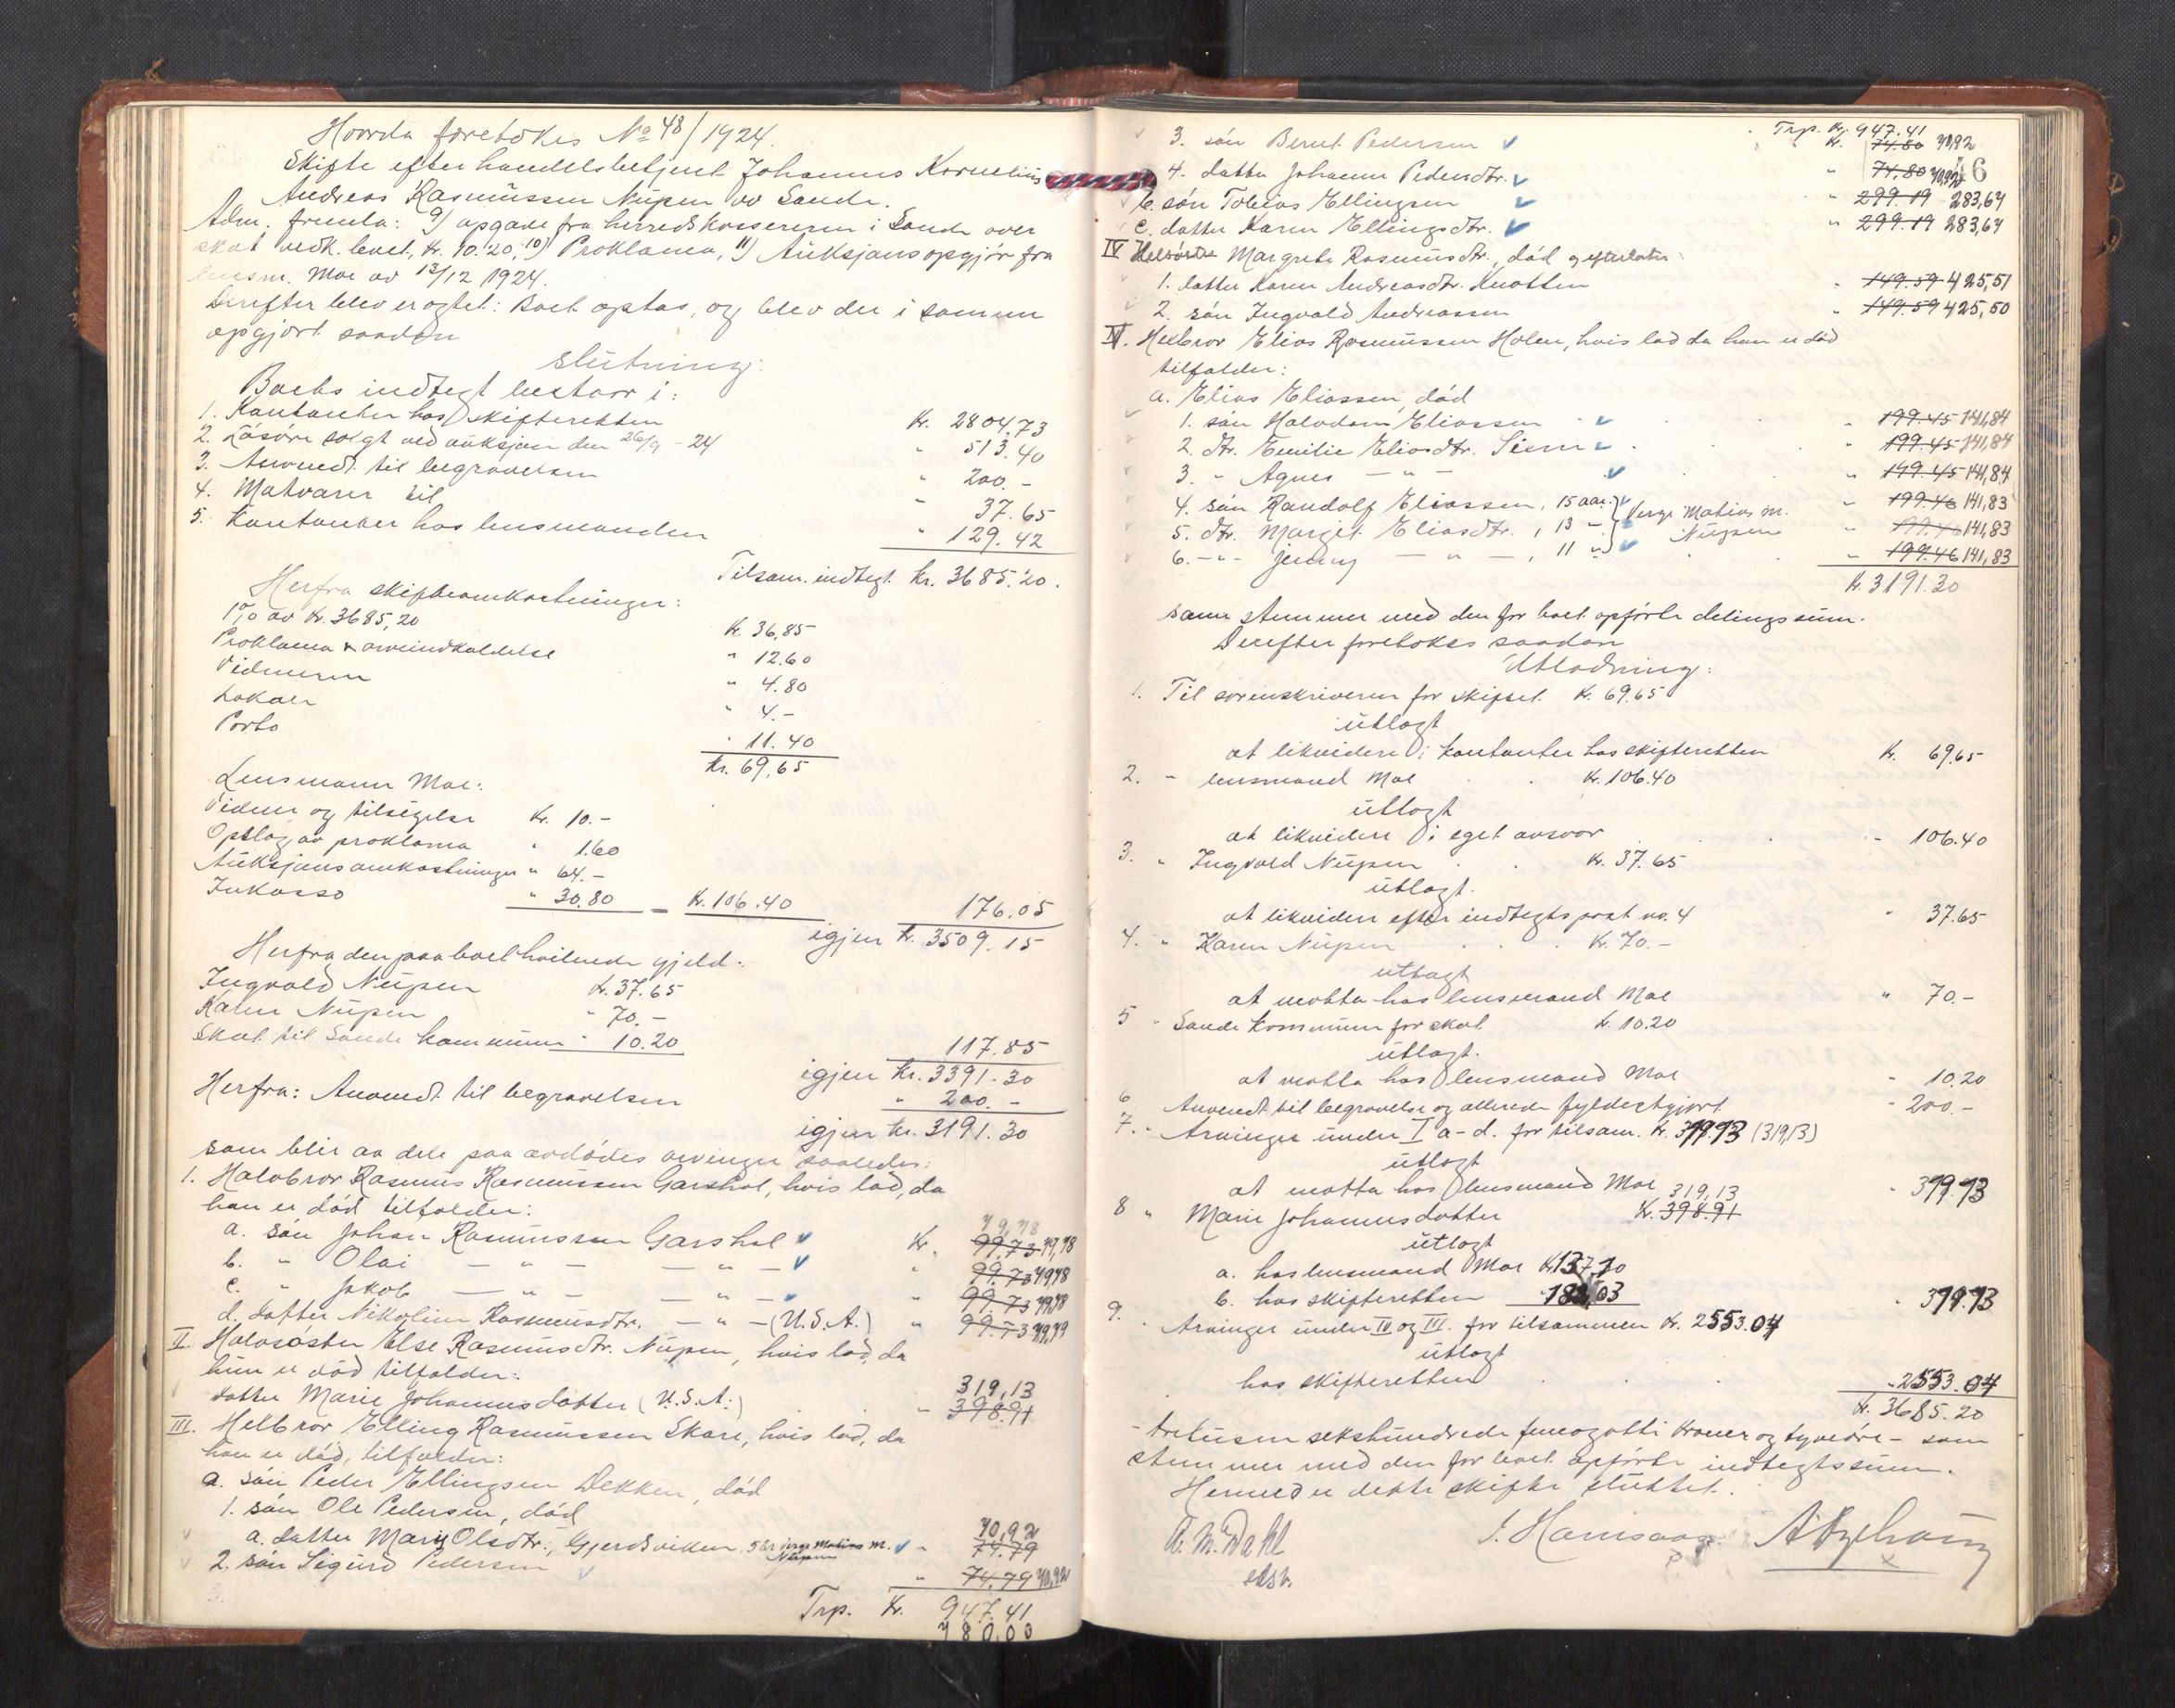 Hvorda foretokes No 48/1924.
Skifte efter handelsbetjent Johannes Kornelius
Andreas Rasmussen Nupen av Sande.
Adm. fremla: 9) opgave fra herredskassereren i Sande over
skat vedk. boet, kr. 10.20, 10) Proklama, 11) Auksjonsopgjör fra
lensm. Moe av 13/12 1924.
Derefter blev eragtet: Boet optas, og blev der i samme
opgjört saadan
slutning:
Boets indtegt bestaar i:
1. Kontanter hos skifteretten Kr. 2804.73
2. Lösöre solgt ved auksjon den 26/9 - 24 " 513.40
3. Anvendt til begravelsen " 200.-
4. Matvarer til " 37.65
5. Kontanter hos lensmanden " 129.42
Tilsam. indtegt Kr. 3685.20.
Herfra skifteomkostninger:
1% av Kr. 3685,20 Kr. 36,85
Proklama & arveindkaldelse " 12.60
Vidneren " 4.80
Lokale " 4.-
Porto " 11.40
Kr. 69,65
Lensmann Moe:
Vidner og tilsigelse Kr. 10.-
Opslag av proklama " 1.60
Auksjonsomkostninger " 64.-
Inkasso " 30.80 - Kr. 106.40 176.05
igjen Kr. 3509.15
Herfra den paa boet hvilende gjeld:
Ingvald Nupen Kr. 37.65
Karen Nupen " 70.-
Skat til Sande kommune " 10.20 117.85
igjen Kr. 3391.30
Herfra: Anvendt til begravelsen " 200.-
igjen Kr. 3191.30
som blir aa dele paa avdödes arvinger saaledes:
1. Halvbror Rasmus Rasmussen Garshol, hvis lod, da
han er död tilfalder:
79,78
a. sön Johan Rasmussen Garshol Kr. 99,73 79,78
b. " Olai — " — — " — " 99.73 79,78
c. " Jakob — " — — " — " 99.73 79,78
d. datter Nikoline Rasmusdtr. — " — (U.S.A.) " 99.73 79,79
II. Halvsöster Else Rasmusdtr. Nupen, hvis lod, da
hun er död tilfalder:
319,13
datter Marie Johannesdatter (U.S.A.) " 398.91
III. Helbror Elling Rasmussen Skare, hvis lod, da
han er död, tilfalder:
a. sön Peder Ellingsen Dekken, död
1. sön Ole Pedersen, död
70,92
a. datter Mary Olsdtr., Gjerdsviken 5 år verge Matias M. Nupen " 74.79
2. sön Sigurd Pedersen " 74.79 70,92
Trp. Kr. 947.41
780,00
Trp. Kr. 947.41
3. sön Bernt Pedersen Kr. 74.80 70,92
4. datter Johanne Pedersdtr. " 74.80 70,92
6
b. sön Tobias Ellingsen " 299.19 283,64
c. datter Karen Ellingsdtr. " 299.19 283,64
IV Helsöster Margrete Rasmusdtr., död og efterlater:
1. datter Karen Andreasdtr. Knotten " 149.59 425,51
2. sön Ingvald Andreassen " 149.59 425,50
V. Helbror Elias Rasmussen Holen, hvis lod da han er död
tilfalder:
a. Elias Eliassen, död
1. sön Halvdan Eliassen " 199.45 141,84
2. dtr. Emilie Eliasdtr. Siem " 199.45 141,84
3. " Agnes — " — " 199.45 141,84
4. sön Randolf Eliassen, 15 aar. Verge Matias M. " 199.46 141,83
5. dtr. Margit Eliasdtr., 13 " Nupen " 199.46 141,83
6. - " - Jenny — " —, 11 " " 199.46 141,83
Kr. 3191.30
som stemmer med den for boet opförte delingssum.
Derefter foretokes saadan
Utlodning:
1. Til sorenskriveren for skiftet Kr. 69.65
utlagt
at likvidere i kontanter hos skifteretten Kr. 69.65
2. " lensmand Moe Kr. 106.40
utlagt
at likvidere i eget ansvar " 106.40
3. " Ingvald Nupen Kr. 37.65
utlagt.
at likvidere efter indtegtspost no. 4 " 37.65
4. " Karen Nupen Kr. 70.-
utlagt
at motta hos lensmand Moe " 70.-
5 " Sande kommune for skat Kr. 10.20
utlagt.
at motta hos lensmand Moe " 10.20
6 Anvendt til begravelse og allerede fyldestgjort " 200.-
7. " Arvinger under I a-d. for tilsam. Kr. 319.13 (319,13)
utlagt
at motta hos lensmand Moe " 319.13
319,13
8 " Marie Johannesdatter Kr. 398.91
utlagt
a. hos lensmand Moe Kr. 137.10
b. hos skifteretten 182,03 " 319.13
9. " Arvinger under IV og III. for tilsammen Kr. 2553.04
utlagt
hos skifteretten " 2553.04
Kr. 3685.20
- tretusen sekshundrede femogotti kroner og tyve öre - som
stemmer med den for boet opförte indtegtssum.
Hermed er dette skifte sluttet.